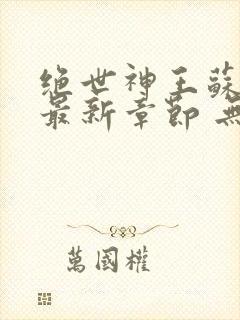 绝世神王蘇
最新章節 無
萬國權